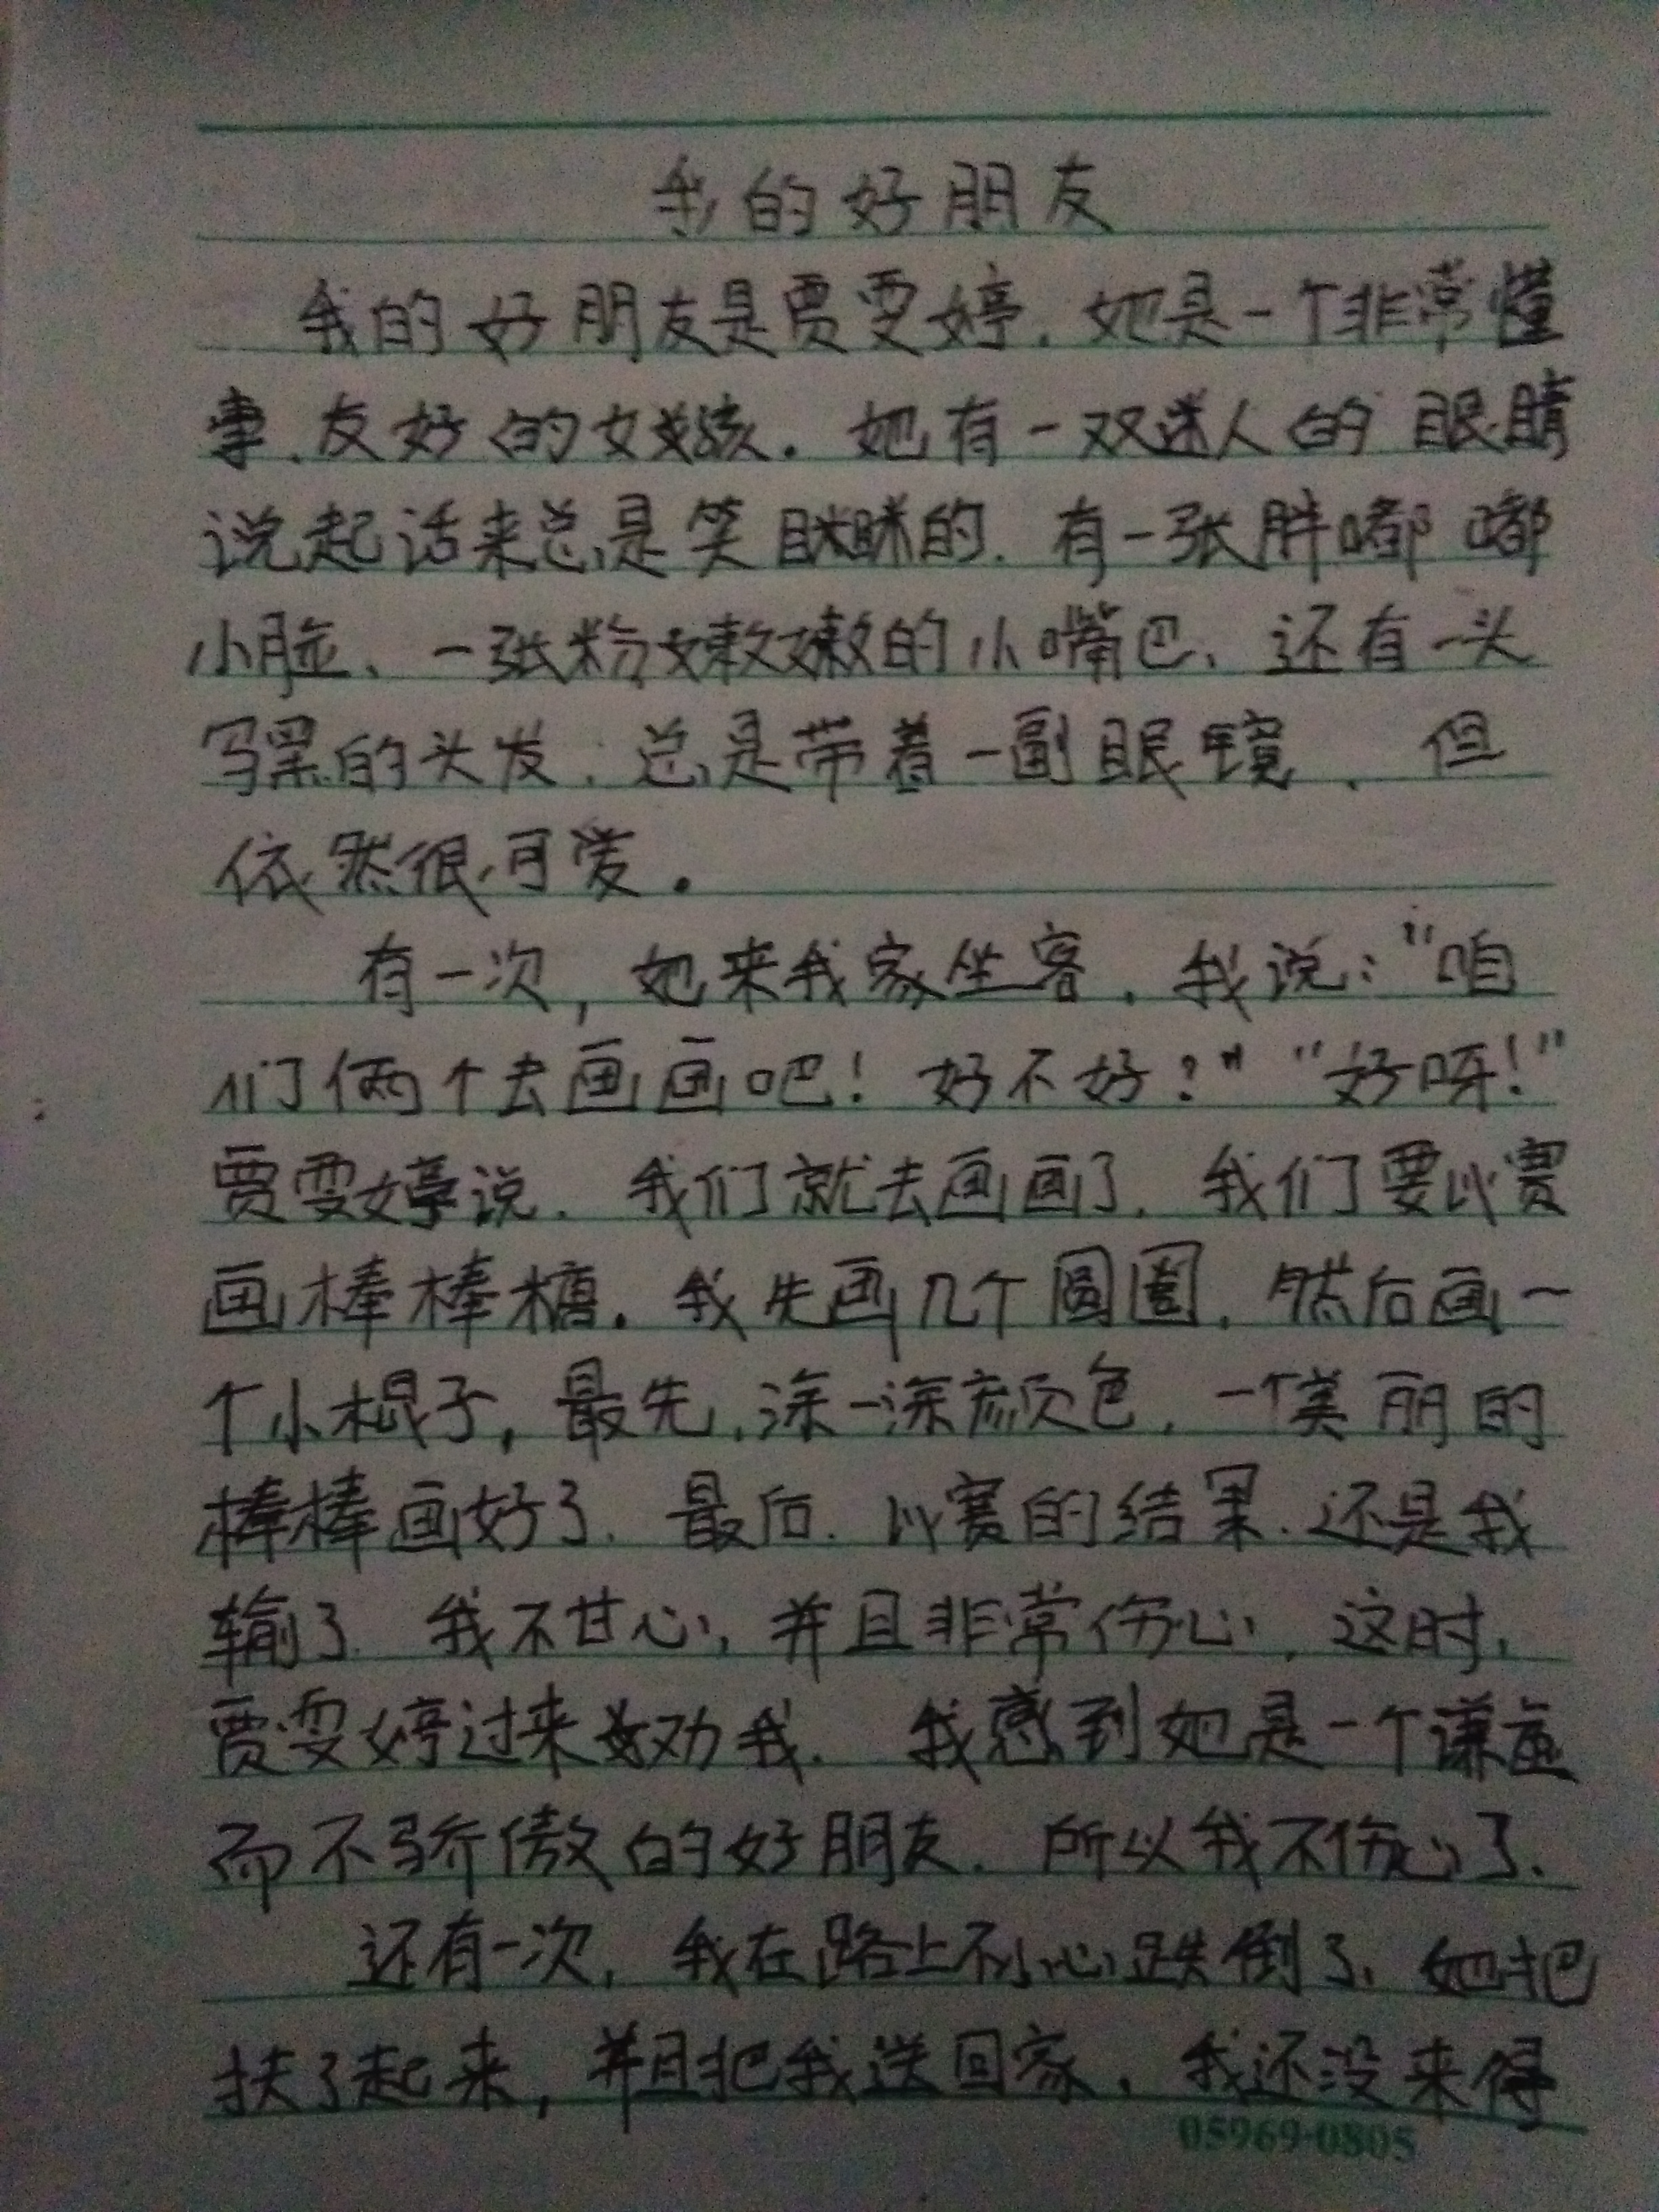 我的好朋友
我的好朋友是贾雯婷.她是一个非常懂
事、友好的女孩.她有一双迷人的眼睛
说起话来总是笑眯眯的.有一张胖嘟嘟
小脸、一张粉嫩嫩的小嘴巴、还有一头
乌黑的头发.总是带着一副眼镜、但
依然很可爱.
有一次,她来我家坐客.我说:“咱
们俩个去画画吧!好不好?”“好呀!”
贾雯婷说.我们就去画画了.我们要比赛
画棒棒糖.我先画几个圆圈.然后画一
个小棍子,最先,涂一涂颜色,一个美丽的
棒棒画好了.最后.比赛的结果.还是我
输了.我不甘心,并且非常伤心,这时,
贾雯婷过来劝我.我感到她是一个谦虚
而不骄傲的好朋友.所以我不伤心了.
还有一次,我在路上不小心跌倒了、她把
扶了起来,并且把我送回家.我还没来得
05969-0805